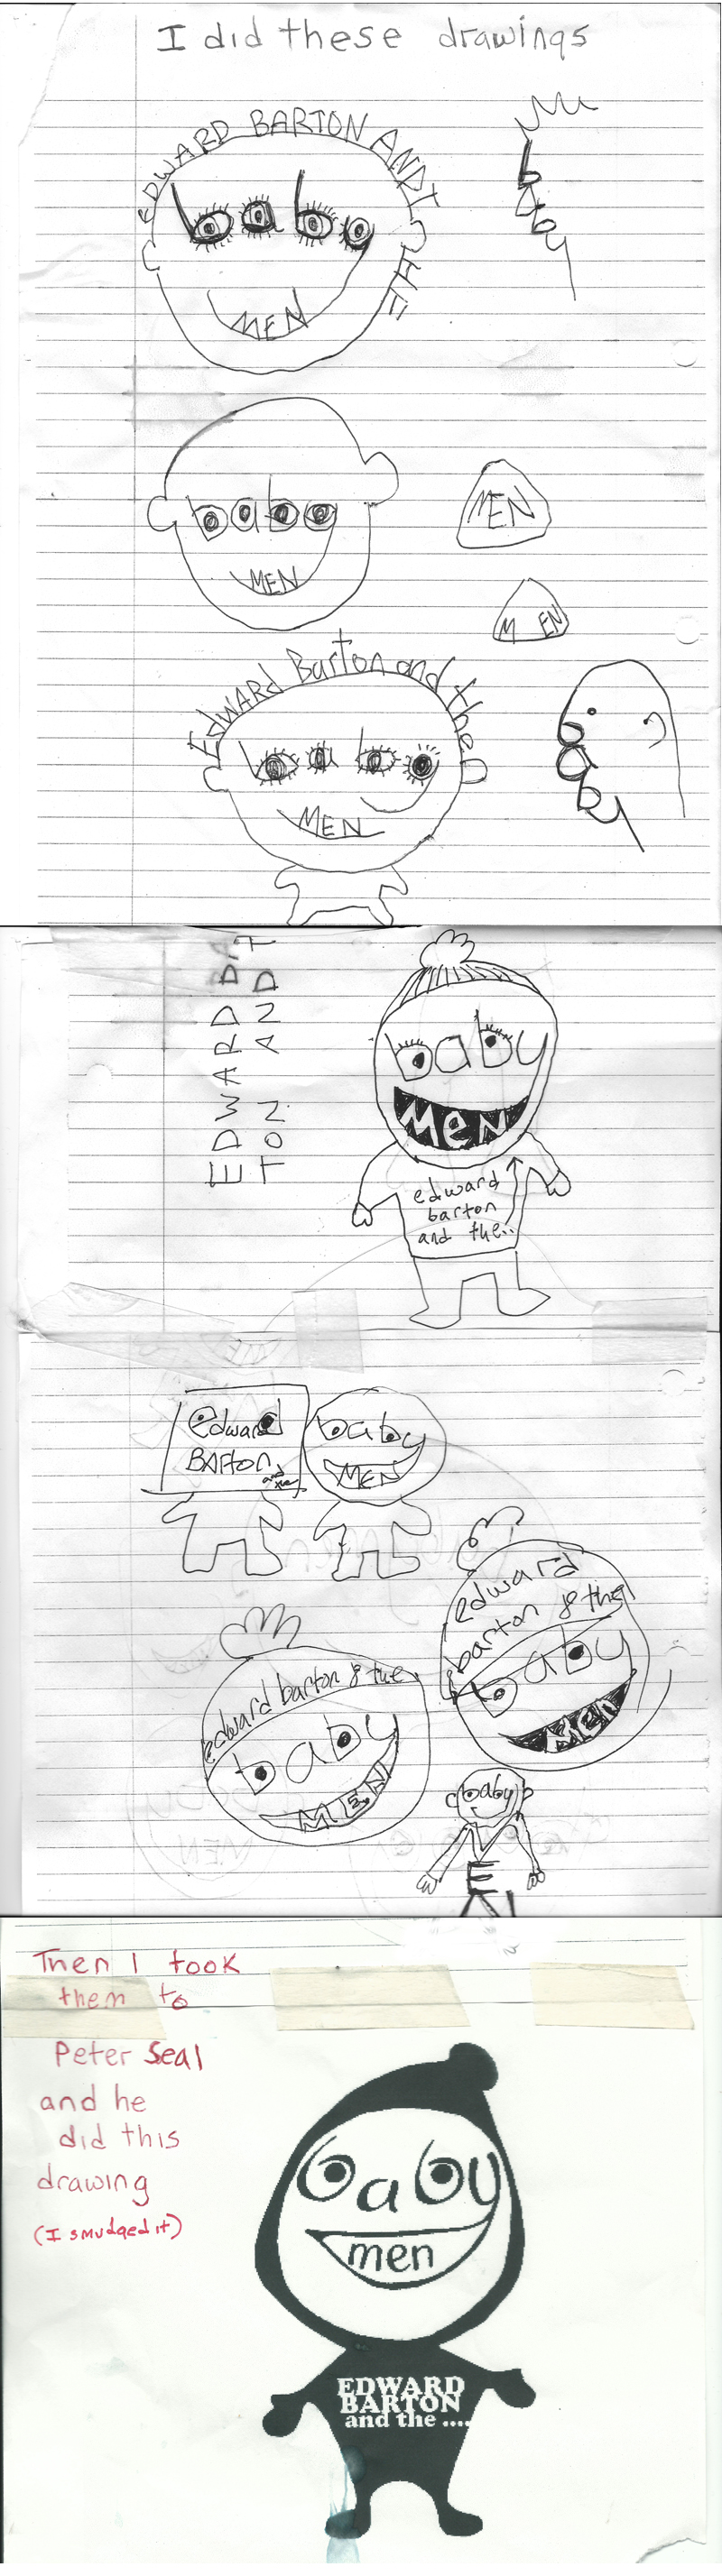 I did these drawings
EDWARD BARTON AND THE
baby
MEN
baby
baby
MEN
MEN
MEN
Edward Barton and the
baby
MEN
baby
EDWARD BA
TON AND T
baby
MeN
edward
barton
and the..
edward
BARton
and the
baby
MEN
edward
barton & the
baby
MEN
edward barton & the
baby
MEN
baby
Then I took
them to
Peter Seal
and he
did this
drawing
(I smudged it)
baby
men
EDWARD
BARTON
and the ....